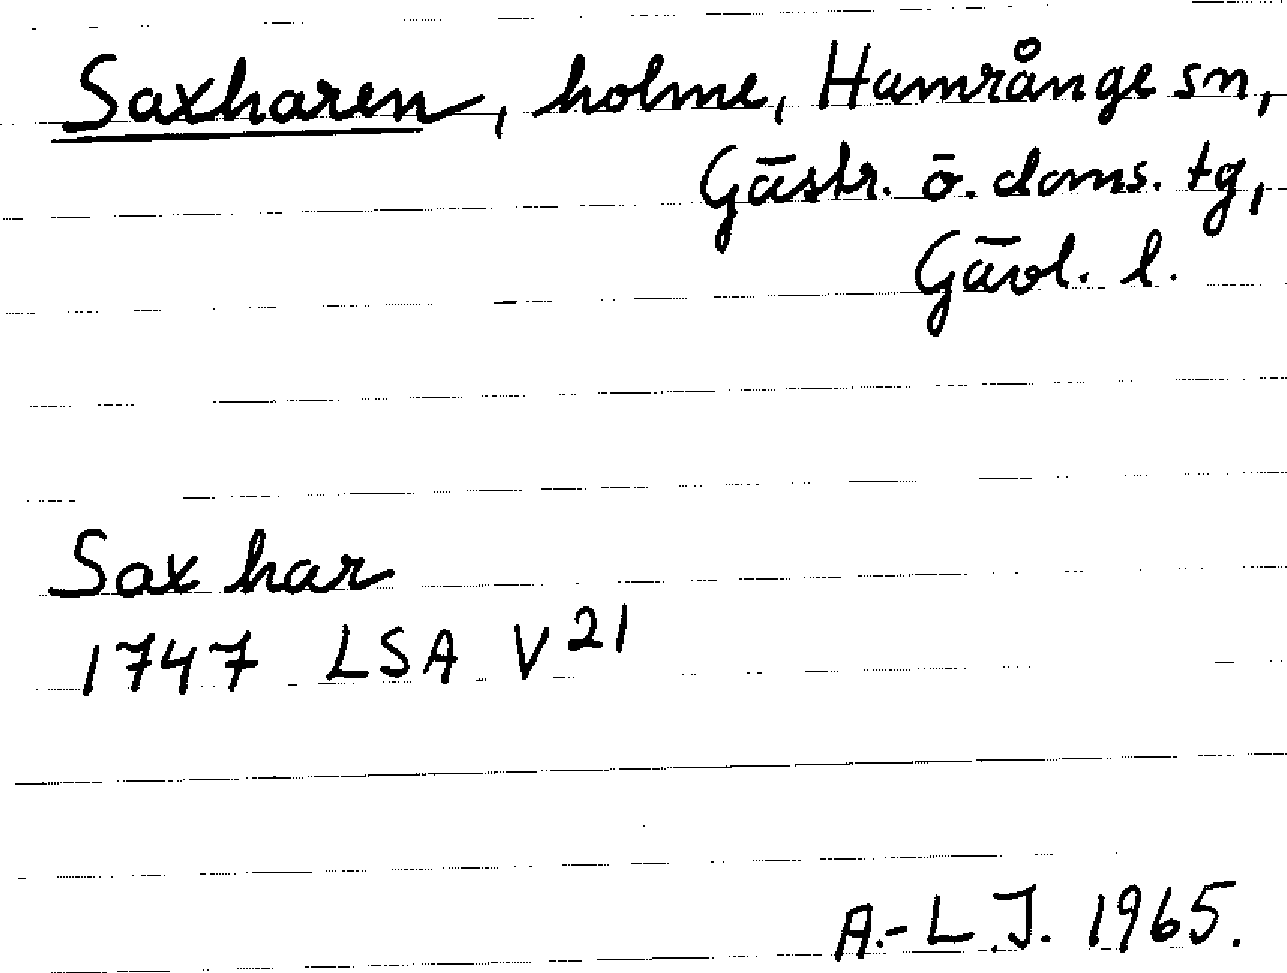 Saxharen, holme, Hamrånge sn,
Gästr. ö. doms. tg,
Gävl. l.
Sax har
1747 LSA V 21
A.-L.J. 1965.